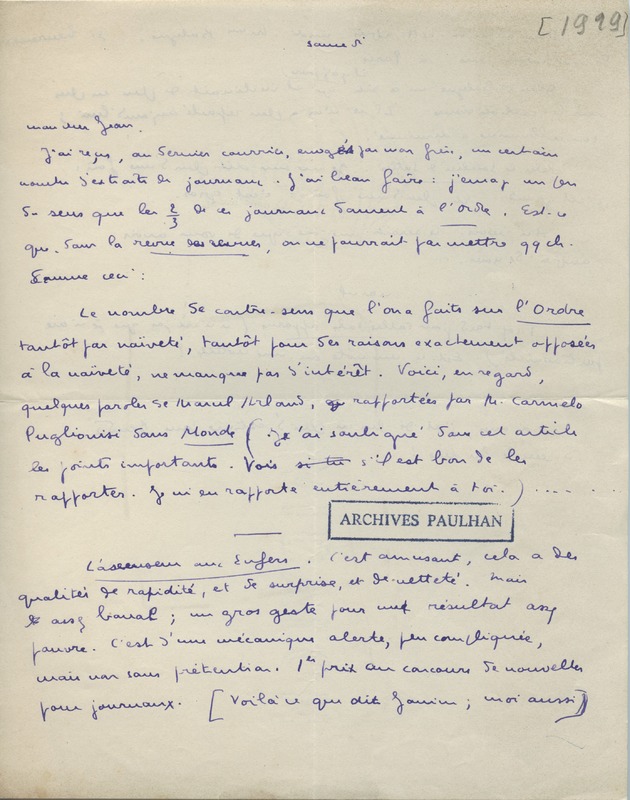 [1929]
samedi
mon cher Jean.
J'ai reçu, au dernier courrier, envoyés par mon frère, un certain
nombre d'extraits de journaux. J'ai beau faire : j'enrage un peu
de sens que les 2/3 de ces journaux donnent à l'Ordre. Est-ce
que, dans la revue des revues, on ne pourrait pas mettre qqch.
comme ceci :
Le nombre de contre-sens que l'on a faits sur l'Ordre
tantôt par naïveté, tantôt pour des raisons exactement opposées
à la naïveté, ne manque pas d'intérêt. Voici, en regard,
quelques paroles de Marcel Arland, rapportées par M. Carmelo
Puglionisi dans Monde (Je t'ai souligné dans cet article
les points importants. Vois si tu s'il est bon de les
rapporter. Je m'en rapporte entièrement à toi.) .... . .
ARCHIVES PAULHAN
L'ascenseur aux Enfers. C'est amusant, cela a des
qualités de rapidité, et de surprise, et de netteté. Mais
assez banal ; un gros geste pour un résultat assez
pauvre. C'est d'une mécanique alerte, peu compliquée,
mais non sans prétention. 1er prix au concours de nouvelles
pour journaux. [Voilà ce que dit Janine ; moi aussi]